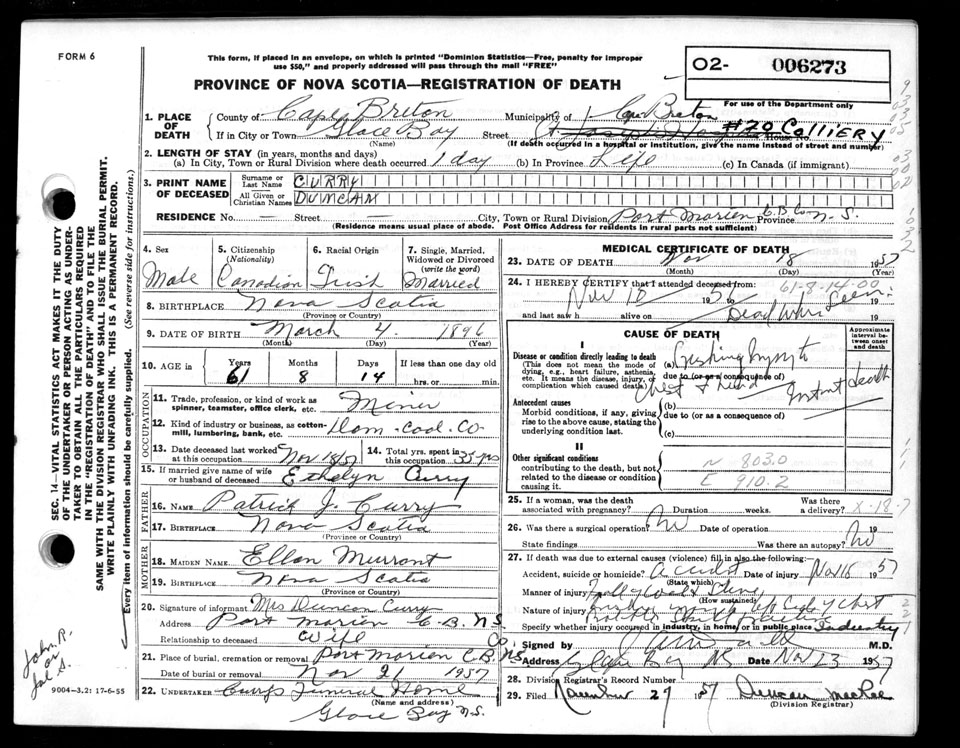 FORM 6
This form, if placed in an envelope, on which is printed "Dominion Statistics—Free, penalty for improper
use $50," and properly addressed will pass through the mail "FREE"
PROVINCE OF NOVA SCOTIA—REGISTRATION OF DEATH
O2- 006273
For use of the Department only
1. PLACE OF DEATH
County of Cape Breton Municipality of Cape Breton
If in City or Town Glace Bay Street St. Joseph's House No. #20 Colliery
(Name) (If death occurred in a hospital or institution, give the name instead of street and number)
2. LENGTH OF STAY (in years, months and days)
(a) In City, Town or Rural Division where death occurred 1 day (b) In Province Life (c) In Canada (if immigrant)
3. PRINT NAME OF DECEASED
Surname or Last Name CURRY
All Given or Christian Names DUNCAN
RESIDENCE No. — Street — City, Town or Rural Division Port Morien C.B. Co. Province N.S.
(Residence means usual place of abode. Post Office Address for residents in rural parts not sufficient)
4. Sex Male
5. Citizenship (Nationality) Canadian
6. Racial Origin Irish
7. Single, Married, Widowed or Divorced (write the word) Married
8. BIRTHPLACE Nova Scotia
(Province or Country)
9. DATE OF BIRTH March 4. 1896
(Month) (Day) (Year)
10. AGE in Years 61 Months 8 Days 14 If less than one day old hrs. or min.
OCCUPATION
11. Trade, profession, or kind of work as spinner, teamster, office clerk, etc. Miner
12. Kind of industry or business, as cotton-mill, lumbering, bank, etc. Dom. Coal. Co
13. Date deceased last worked at this occupation Nov 18/57
14. Total yrs. spent in this occupation 35 yrs
15. If married give name of wife or husband of deceased Ethelyn Curry
FATHER
16. NAME Patrick J. Curry
17. BIRTHPLACE Nova Scotia
(Province or Country)
MOTHER
18. MAIDEN NAME Ellen Murrant
19. BIRTHPLACE Nova Scotia
(Province or Country)
20. Signature of informant Mrs Duncan Curry
Address Port Morien C.B. N.S
Relationship to deceased Wife
21. Place of burial, cremation or removal Port Morien C.B. Co, NS
Date of burial or removal Nov 21 1957
22. UNDERTAKER Curry's Funeral Home
(Name and address)
Glace Bay N.S.
MEDICAL CERTIFICATE OF DEATH
23. DATE OF DEATH Nov 18 1957
(Month) (Day) (Year)
24. I HEREBY CERTIFY that I attended deceased from: 61-8-14-00
Nov 18 19 57 19
and last saw h alive on Dead when seen 19
CAUSE OF DEATH
Approximate interval between onset and death
I
Disease or condition directly leading to death
(This does not mean the mode of dying, e.g., heart failure, asthenia, etc. It means the disease, injury, or complication which caused death)
(a) Crushing injury to
due to (or as a consequence of)
Chest & head Instant death
Antecedent causes
Morbid conditions, if any, giving rise to the above cause, stating the underlying condition last.
(b)
due to (or as a consequence of)
(c)
II
Other significant conditions
contributing to the death, but not related to the disease or condition causing it.
N 803.0
E 910.2
25. If a woman, was the death associated with pregnancy? Duration weeks. Was there a delivery? X-18-7
26. Was there a surgical operation? No Date of operation 19
State findings Was there an autopsy? No
27. If death was due to external causes (violence) fill in also the following:
Accident, suicide or homicide? accident Date of injury Nov 18 1957
(State which)
Manner of injury Fall of Coal & Stone
(How sustained)
Nature of injury
Specify whether injury occurred in industry, in home, or in public place Industry
Signed by M.D.
Address Glace Bay NS Date Nov 23 1957
28. Division Registrar's Record Number
29. Filed November 29 1957 Duncan MacRae
(Division Registrar)
SEC. 14—VITAL STATISTICS ACT MAKES IT THE DUTY
OF THE UNDERTAKER OR PERSON ACTING AS UNDER-
TAKER TO OBTAIN ALL THE PARTICULARS REQUIRED
IN THE "REGISTRATION OF DEATH" AND TO FILE THE
SAME WITH THE DIVISION REGISTRAR WHO SHALL ISSUE THE BURIAL PERMIT.
WRITE PLAINLY WITH UNFADING INK. THIS IS A PERMANENT RECORD.
Every item of information should be carefully supplied. (See reverse side for instructions.)
John R.
or
Jal S.
9004-3.2: 17-6-55